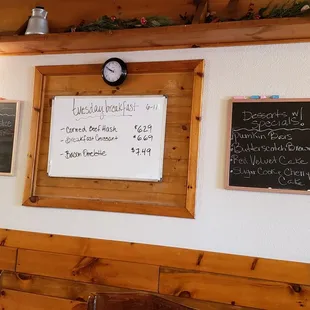 Tuesday breakfast 6-11
- Corned Beef Hash $6.29
- Breakfast Croissant $6.69
- Bacon Omelette $7.49
Desserts w/
specials
Pumpkin Bars
Butterscotch Brow
Red Velvet Cake
Sugar Cookie Cherry
Cake